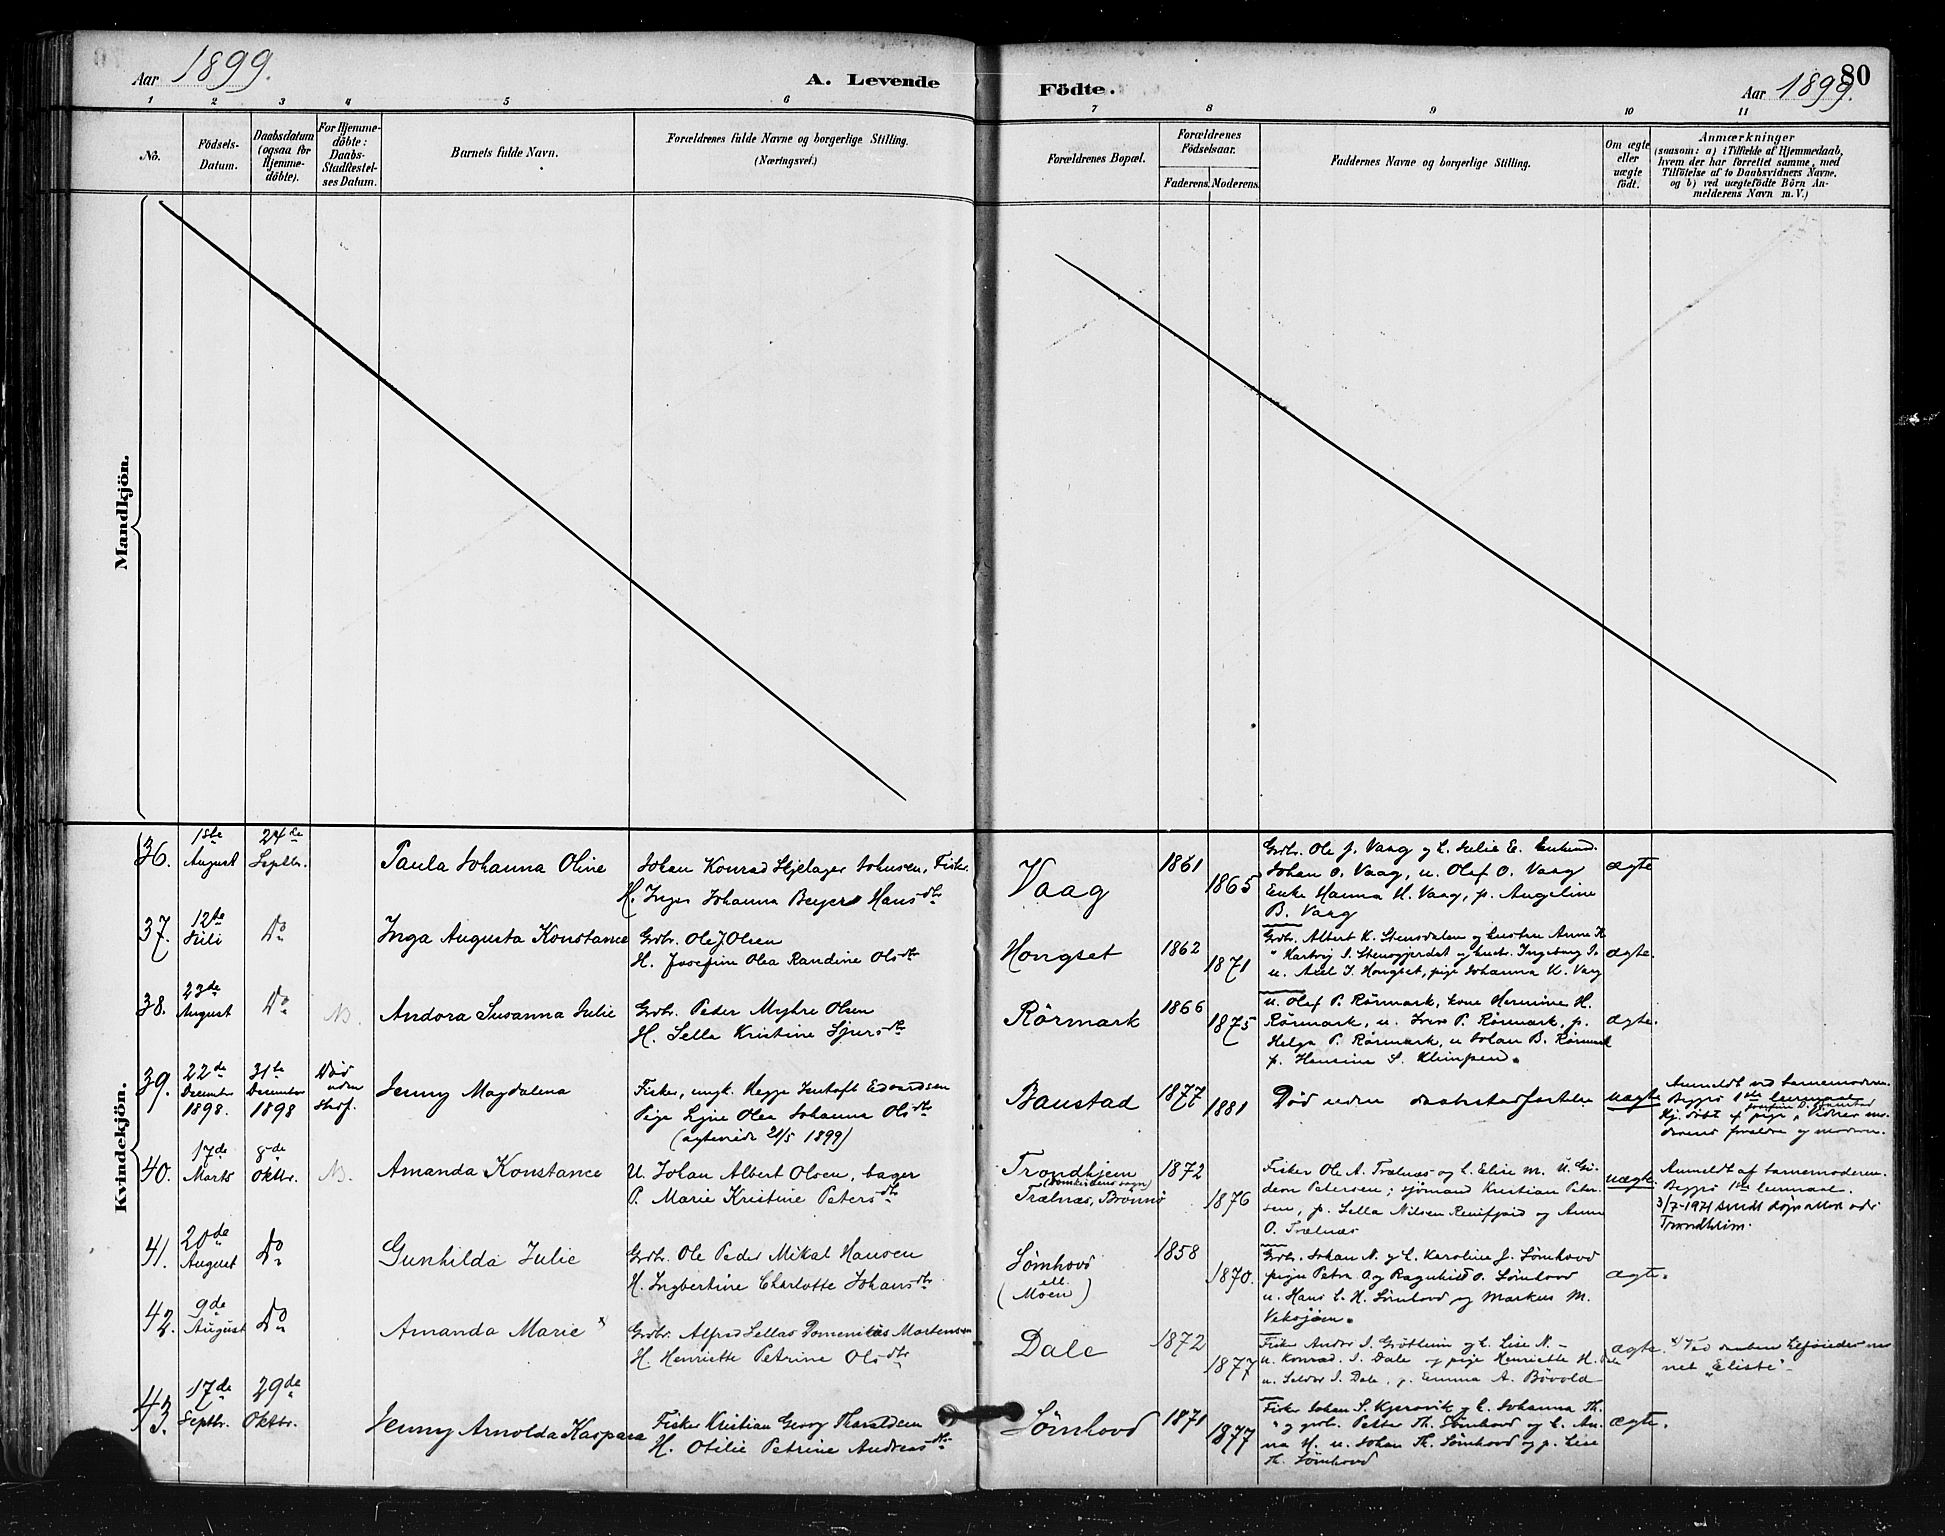 Aar 1899.
A. Levende
Födte.
Aar 1899.
80
1 2 3 4 5 6 7 8 9 10 11
No.
Födsels-
Datum.
Daabsdatum
(ogsaa for
Hjemme-
döbte).
For Hjemme-
döbte:
Daabs-
Stadfæstel-
ses Datum.
Barnets fulde Navn.
Forældrenes fulde Navne og borgerlige Stilling.
(Næringsvei.)
Forældrenes Bopæl.
Forældrenes
Födselsaar.
Faderens. Moderens.
Faddernes Navne og borgerlige Stilling.
Om ægte
eller
uægte
födt.
Anmærkninger
(saasom: a) i Tilfælde af Hjemmedaab,
hvem der har forrettet samme, med
Tilföielse af to Daabsvidners Navne.
og b) ved uægtefödte Börn An-
melderens Navn m. V.)
Mandkjön.
Kvindekjön.
36.
18de
August
24de
Septbr.
Paula Johanna Oline
Johan Konrad Hjelager Johnsen, Fisker
H. Inger Johanna Beyer Hansdtr
Vaag
1861
1865
Grdbr. Ole J. Vaag og h. Julie E.
Johan O. Vaag, u. Olef O. Vaag
Enke Hanna H. Vaag, p. Angeline
B. Vaag
ægte
37.
12te
Juli
Do
Inga Augusta Konstance
Grdbr. Ole J. Olsen
H. Josefine Olea Randine Olsdtr
Hongset
1862
1871
Grdbr. Albert K. Stensdalen og hustru Anne K
" Hartvig I. Stensgjerdet og hustr. Ingeborg I.
u. Axel I. Hongset, pige Johanna U. Vaag
ægte.
38.
23de
August
Do
N.
Andora Susanna Julie
Grdbr. Peder Myhre Olsen
H. Sella Kristine Sjursdtr
Rörmark
1866
1875
u. Olef P. Rörmark, kone Hermine H.
Rörmark, u. Iver P. Rörmark, p.
Helga P. Rörmark, u Johan B. Rörmark
p. Hansine S. Klimpen.
ægte.
39.
22de
December
1898.
31te
December
1898
Död
uden
Jenny Magdalena
Fisker, ungk. Hegge Imhoft Edvardsen
Pige Lyne Olea Johanna Olsdtr
(ægteviede 21/5 1899)
Baustad
1877
1881
Död uden daabstadfæstelse
uægte
Anmeldt ved barnemoderen.
Begges 1ste leiermaal
40.
17de
Marts
8de
Oktbr.
N.
Amanda Konstance
U. Johan Albert Olsen, bager
P. Marie Kristine Petersdtr
Trondhjem
(Domkirkens sogn)
Trælnæs, Brönnö
1872
1876
Fisker Ole A. Trælnæs og h. Elise M. U. Gi-
deon Petersen; sjömand Kristian Peter-
sen, p. Sella Nilsen Remfjord og Anna
O. Trælnæs
uægte.
Anmeldt af barnemoderen.
Begges 1ste leiermaal.
3/7-1971 sendt
Trondheim.
41.
20de
August
Do
Gunhilda Julie
Grdbr. Ole Peder Mikal Hansen
H. Ingbertine Charlotte Johansdtr
Sömhovd
ell.
(Moen)
1858
1870.
Grdbr. Johan N. og h. Karoline J. Sömhovd
piger Petra O. og Ragnhild O. Sömhovd
u. Hans C. H. Sömhovd og Markus M.
ægte.
42.
9de
August
Do
Amanda Marie x
Grdbr. Alfred Sellas Domenikus Mortensen
H. Henriette Petrine Olsdtr
Dale
1872
1877
Fisker Andor I. Gröttum og h. Lise N. -
u. Konrad I. Dale og pige Henriette H. Dale
u. Seldor I. Dale, p. Emma A. Bövold
ægte.
x) Ved daaben tilföiedes nav-
net "Eliste"
43.
17de
Septbr.
29de
Oktbr.
Jenny Arnolda Kaspara
Fisker Kristian Georg Tharaldsen
H. Otilie Petrine Andreasdtr
Sömhovd
1871
1877
Fisker Johan S. Kjerovik og h. Johanna Th.
" og grdbr. Petter Th. Sömhovd og h. An-
na H. u. Johan Th. Sömhovd og p. Lise
Th. Sömhovd
ægte.